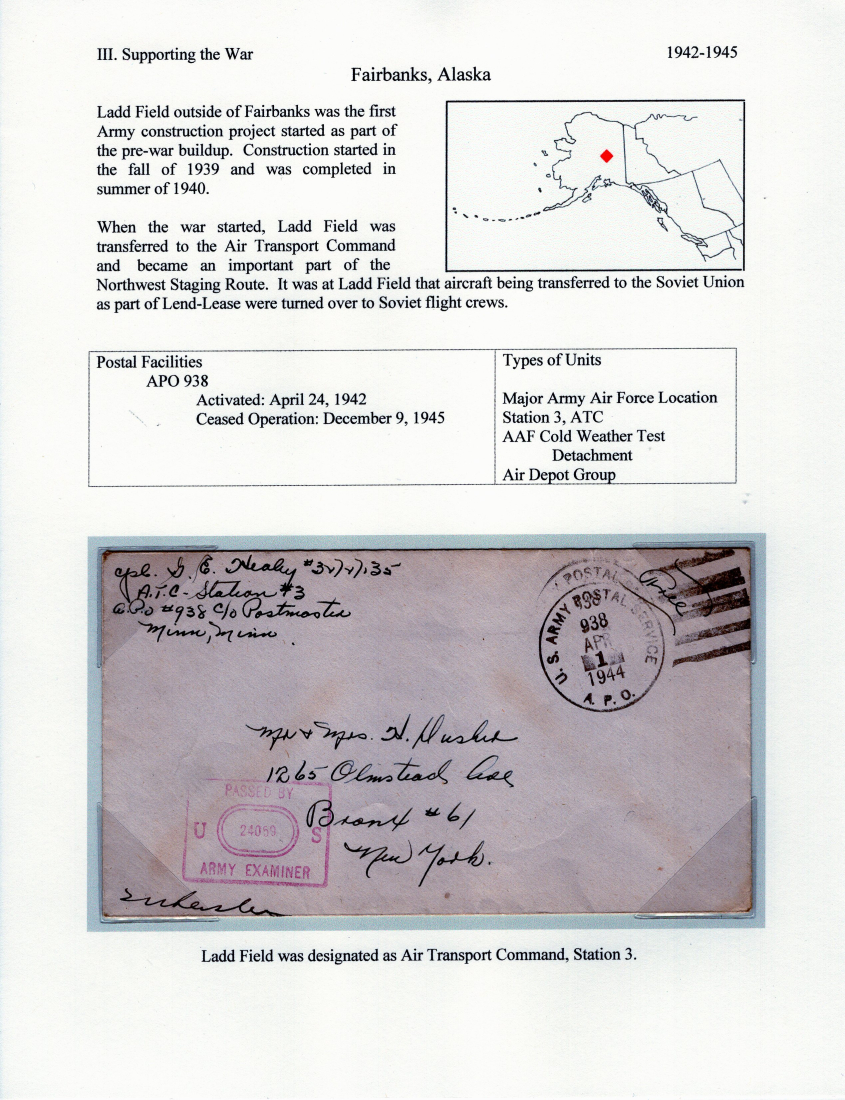 III. Supporting the War 1942-1945
Fairbanks, Alaska
Ladd Field outside of Fairbanks was the first
Army construction project started as part of
the pre-war buildup. Construction started in
the fall of 1939 and was completed in
summer of 1940.
When the war started, Ladd Field was
transferred to the Air Transport Command
and became an important part of the
Northwest Staging Route. It was at Ladd Field that aircraft being transferred to the Soviet Union
as part of Lend-Lease were turned over to Soviet flight crews.
Postal Facilities
APO 938
Activated: April 24, 1942
Ceased Operation: December 9, 1945
Types of Units
Major Army Air Force Location
Station 3, ATC
AAF Cold Weather Test
Detachment
Air Depot Group
Cpl. G. E. Healy
A.T.C - Station #3
A.P.O #938 c/o Postmaster
Minn, Minn.
Free
POSTAL
U. S. ARMY POSTAL SERVICE
938
938
APR
1
1944
A. P. O.
Mr & Mrs. H.
1265 Olmstead Ave
Bronx #61
New York.
PASSED BY
U 24059 S
ARMY EXAMINER
Ladd Field was designated as Air Transport Command, Station 3.